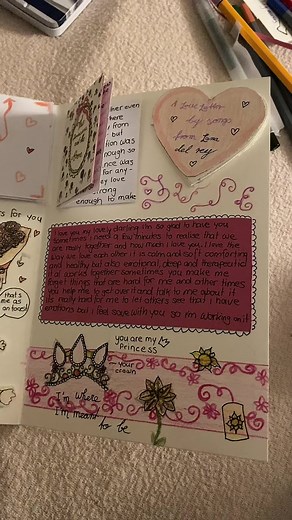 ever even
here
from
but
tion was
enough so
ance was
for any-
ey love
strong
enough to make
A Love Letter
by songs
from Lana
del rey
s for you
that's
me as
an toast
I love you my lovely darling I'm so glad to have you
Sometimes I needs a few minutes to realize that we
are really together and how much I love you. I love the
way we love each other it is calm and soft comforting
and healthy but also emotional deep and therapeutic
all at once together sometimes you make me
forget things that are hard for me and other times
you help me to get over it and talk to me about it
It's really hard for me to let others see that I have
emotions but I feel save with you so I'm working on it
you are my
Princess
your
crown
I'm where
I'm meant
to be